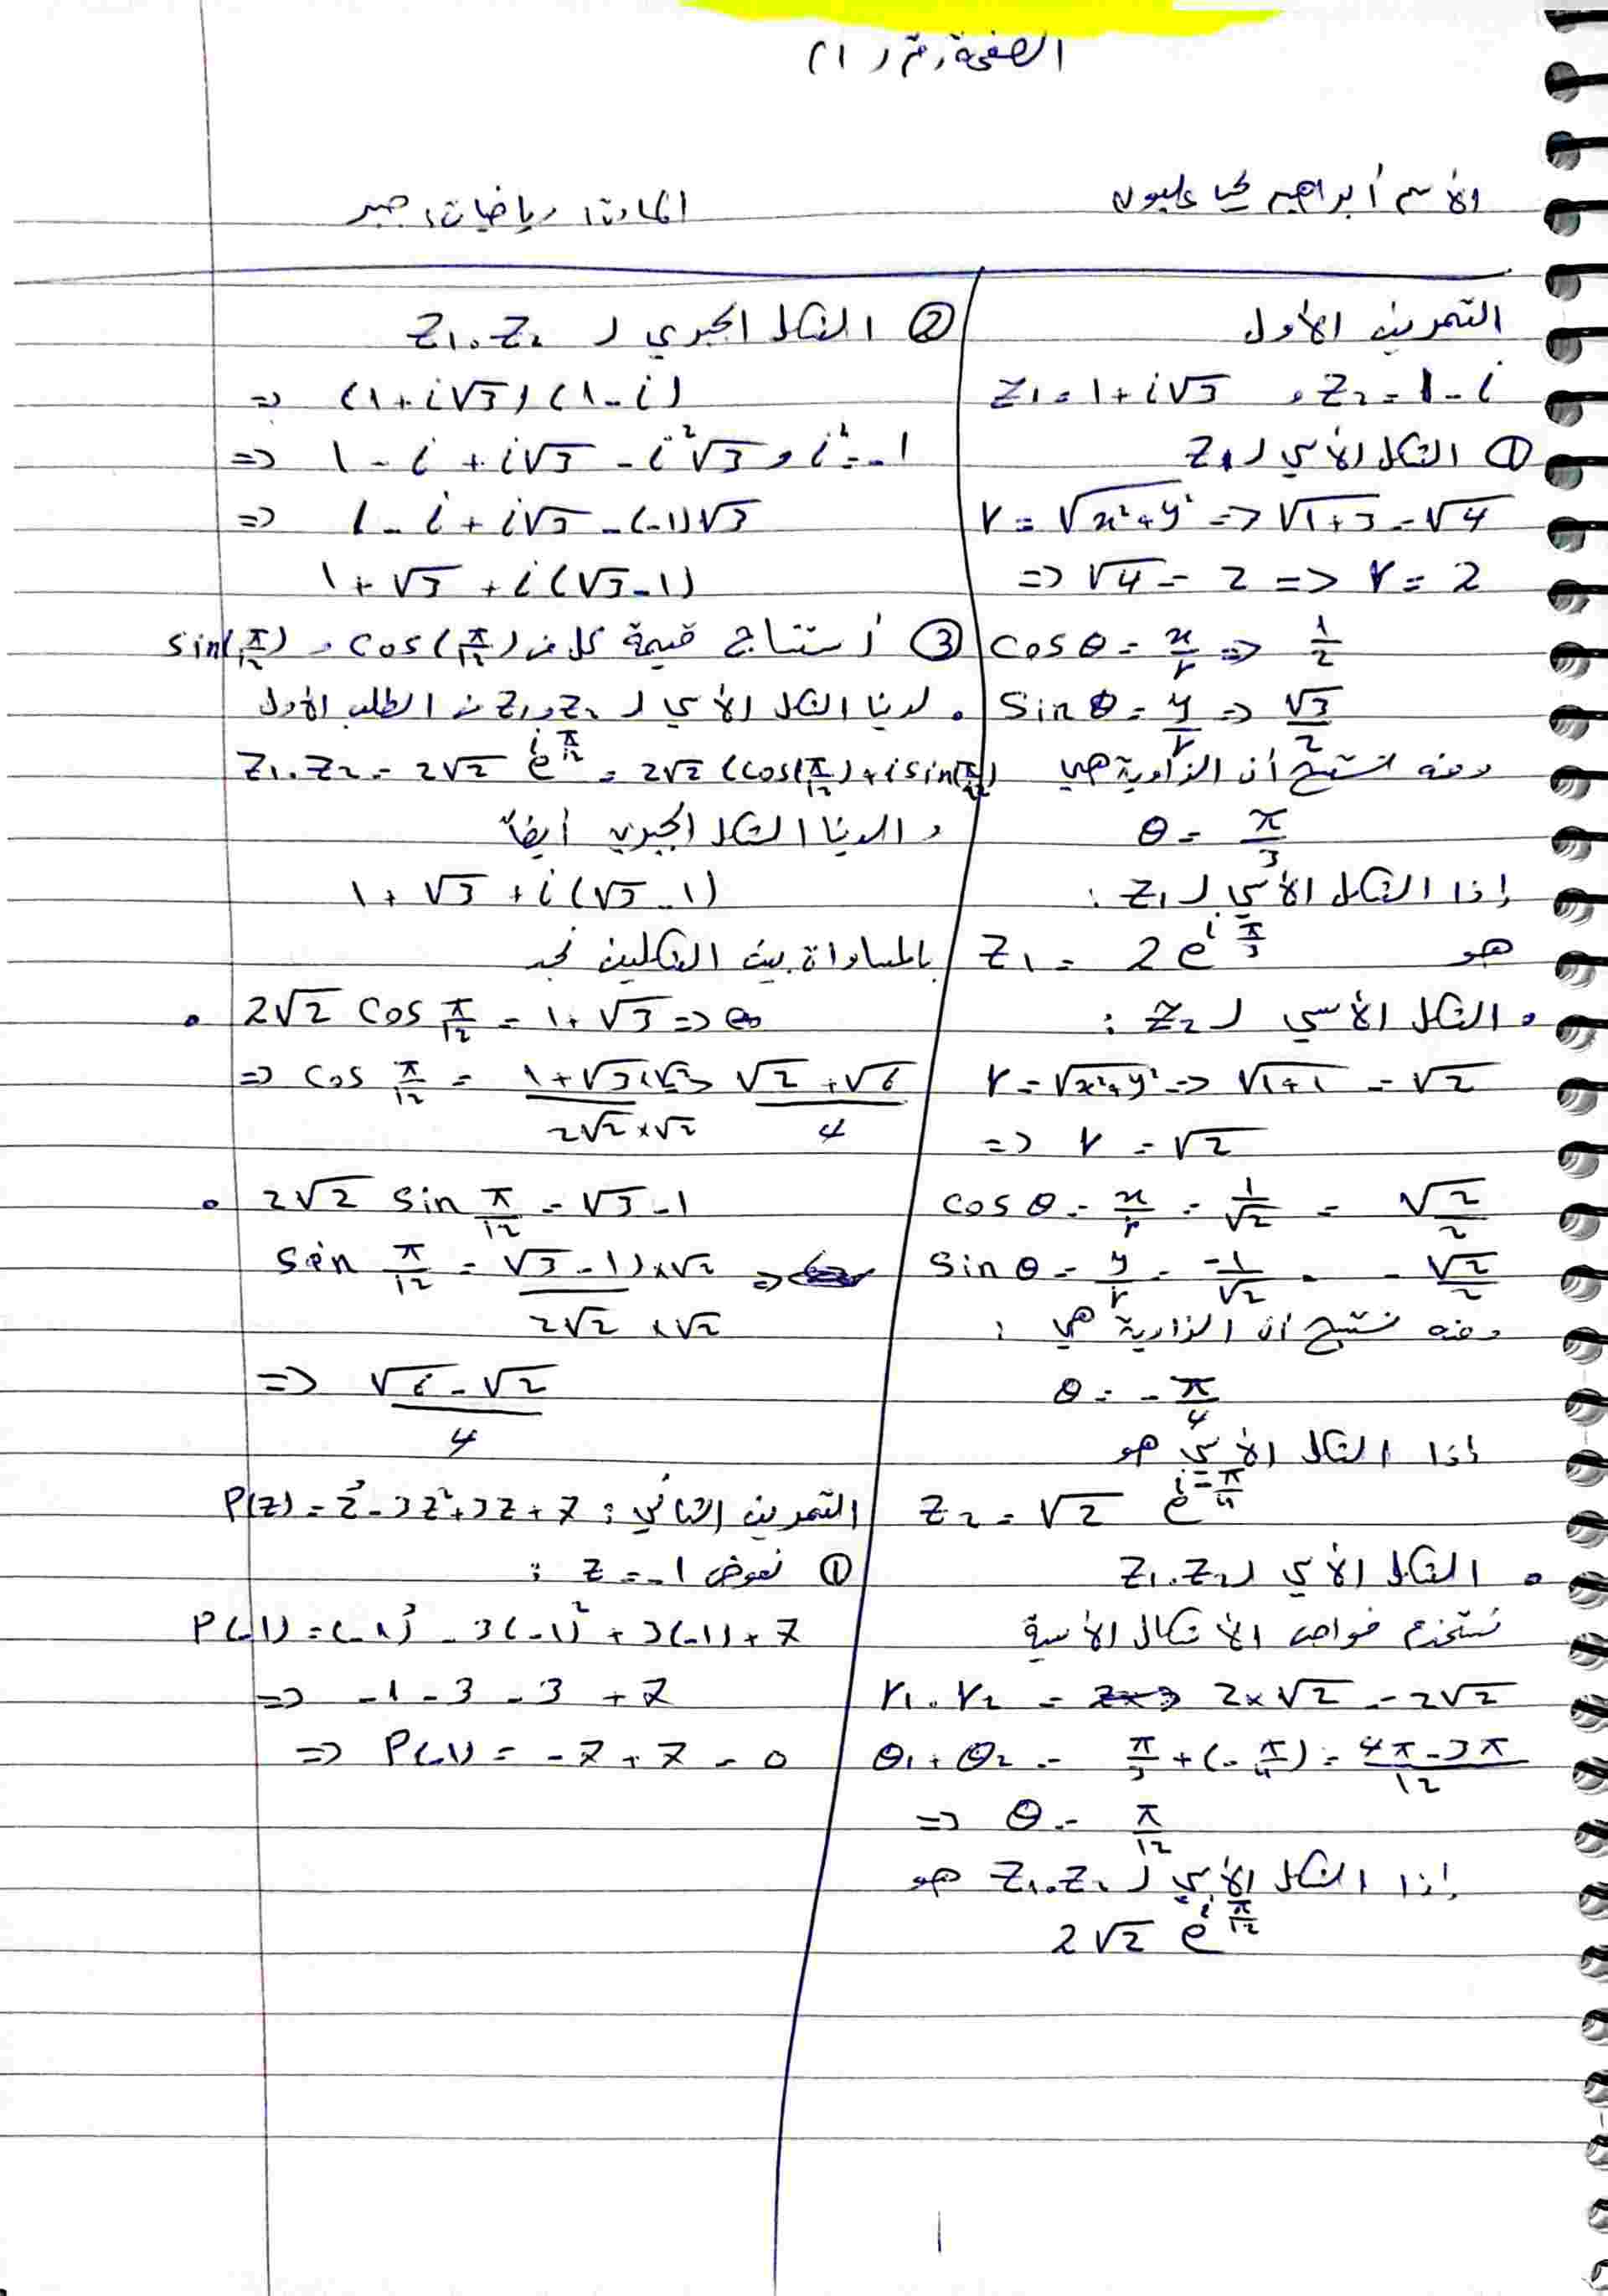 الصفحة رقم (1)
الأسم أبراهيم يحيا عليون
المادة: رياضيات، جبر
التمرين الأول
Z₁ = 1 + i√3 , Z₂ = 1 - i
① الشكل الأسي لـ Z₁
r = √x²+y² => √1+3 = √4
=> √4 = 2 => r = 2
cos θ = x/r => 1/2
sin θ = y/r => √3/2
ومنه نستنتج أن الزاوية هي
θ = π/3
إذا الشكل الأسي لـ Z₁ :
هو Z₁ = 2 e^(i π/3)
• الشكل الأسي لـ Z₂ :
r = √x²+y² => √1+1 = √2
=> r = √2
cos θ = x/r = 1/√2 = √2/2
sin θ = y/r = -1/√2 = -√2/2
ومنه نستنتج ان الزاوية هي :
θ = -π/4
إذا الشكل الأسي هو
Z₂ = √2 e^(i -π/4)
• الشكل الأسي لـ Z₁.Z₂
نستخدم خواص الأشكال الأسية
r₁.r₂ = 2×√2 = 2√2
θ₁ + θ₂ = π/3 + (-π/4) = 4π-3π/12
=> θ = π/12
إذا الشكل الأسي لـ Z₁.Z₂ هو
2√2 e^(i π/12)
② الشكل الجبري لـ Z₁.Z₂
=> (1+i√3)(1-i)
=> 1 - i + i√3 - i²√3 , i² = -1
=> 1 - i + i√3 - (-1)√3
1 + √3 + i(√3-1)
③ أستنتاج قيمة كل من cos(π/12) , sin(π/12)
• لدينا الشكل الأسي لـ Z₁.Z₂ من الطلب الأول
Z₁.Z₂ = 2√2 e^(i π/12) = 2√2 (cos(π/12) + i sin(π/12))
و الدينا الشكل الجبري أيضاً
1 + √3 + i(√3-1)
بالمساواة بين الشكلين نجد
• 2√2 cos π/12 = 1 + √3 =>
=> cos π/12 = 1+√3(√2)/2√2×√2 => √2+√6/4
• 2√2 sin π/12 = √3-1
sin π/12 = √3-1)×√2/2√2×√2 =>
=> √6-√2/4
التمرين الثاني : P(Z) = Z³ - 3Z² + 3Z + 7
① نعوض Z = -1 :
P(-1) = (-1)³ - 3(-1)² + 3(-1) + 7
=> -1 - 3 - 3 + 7
=> P(-1) = -7 + 7 = 0
1